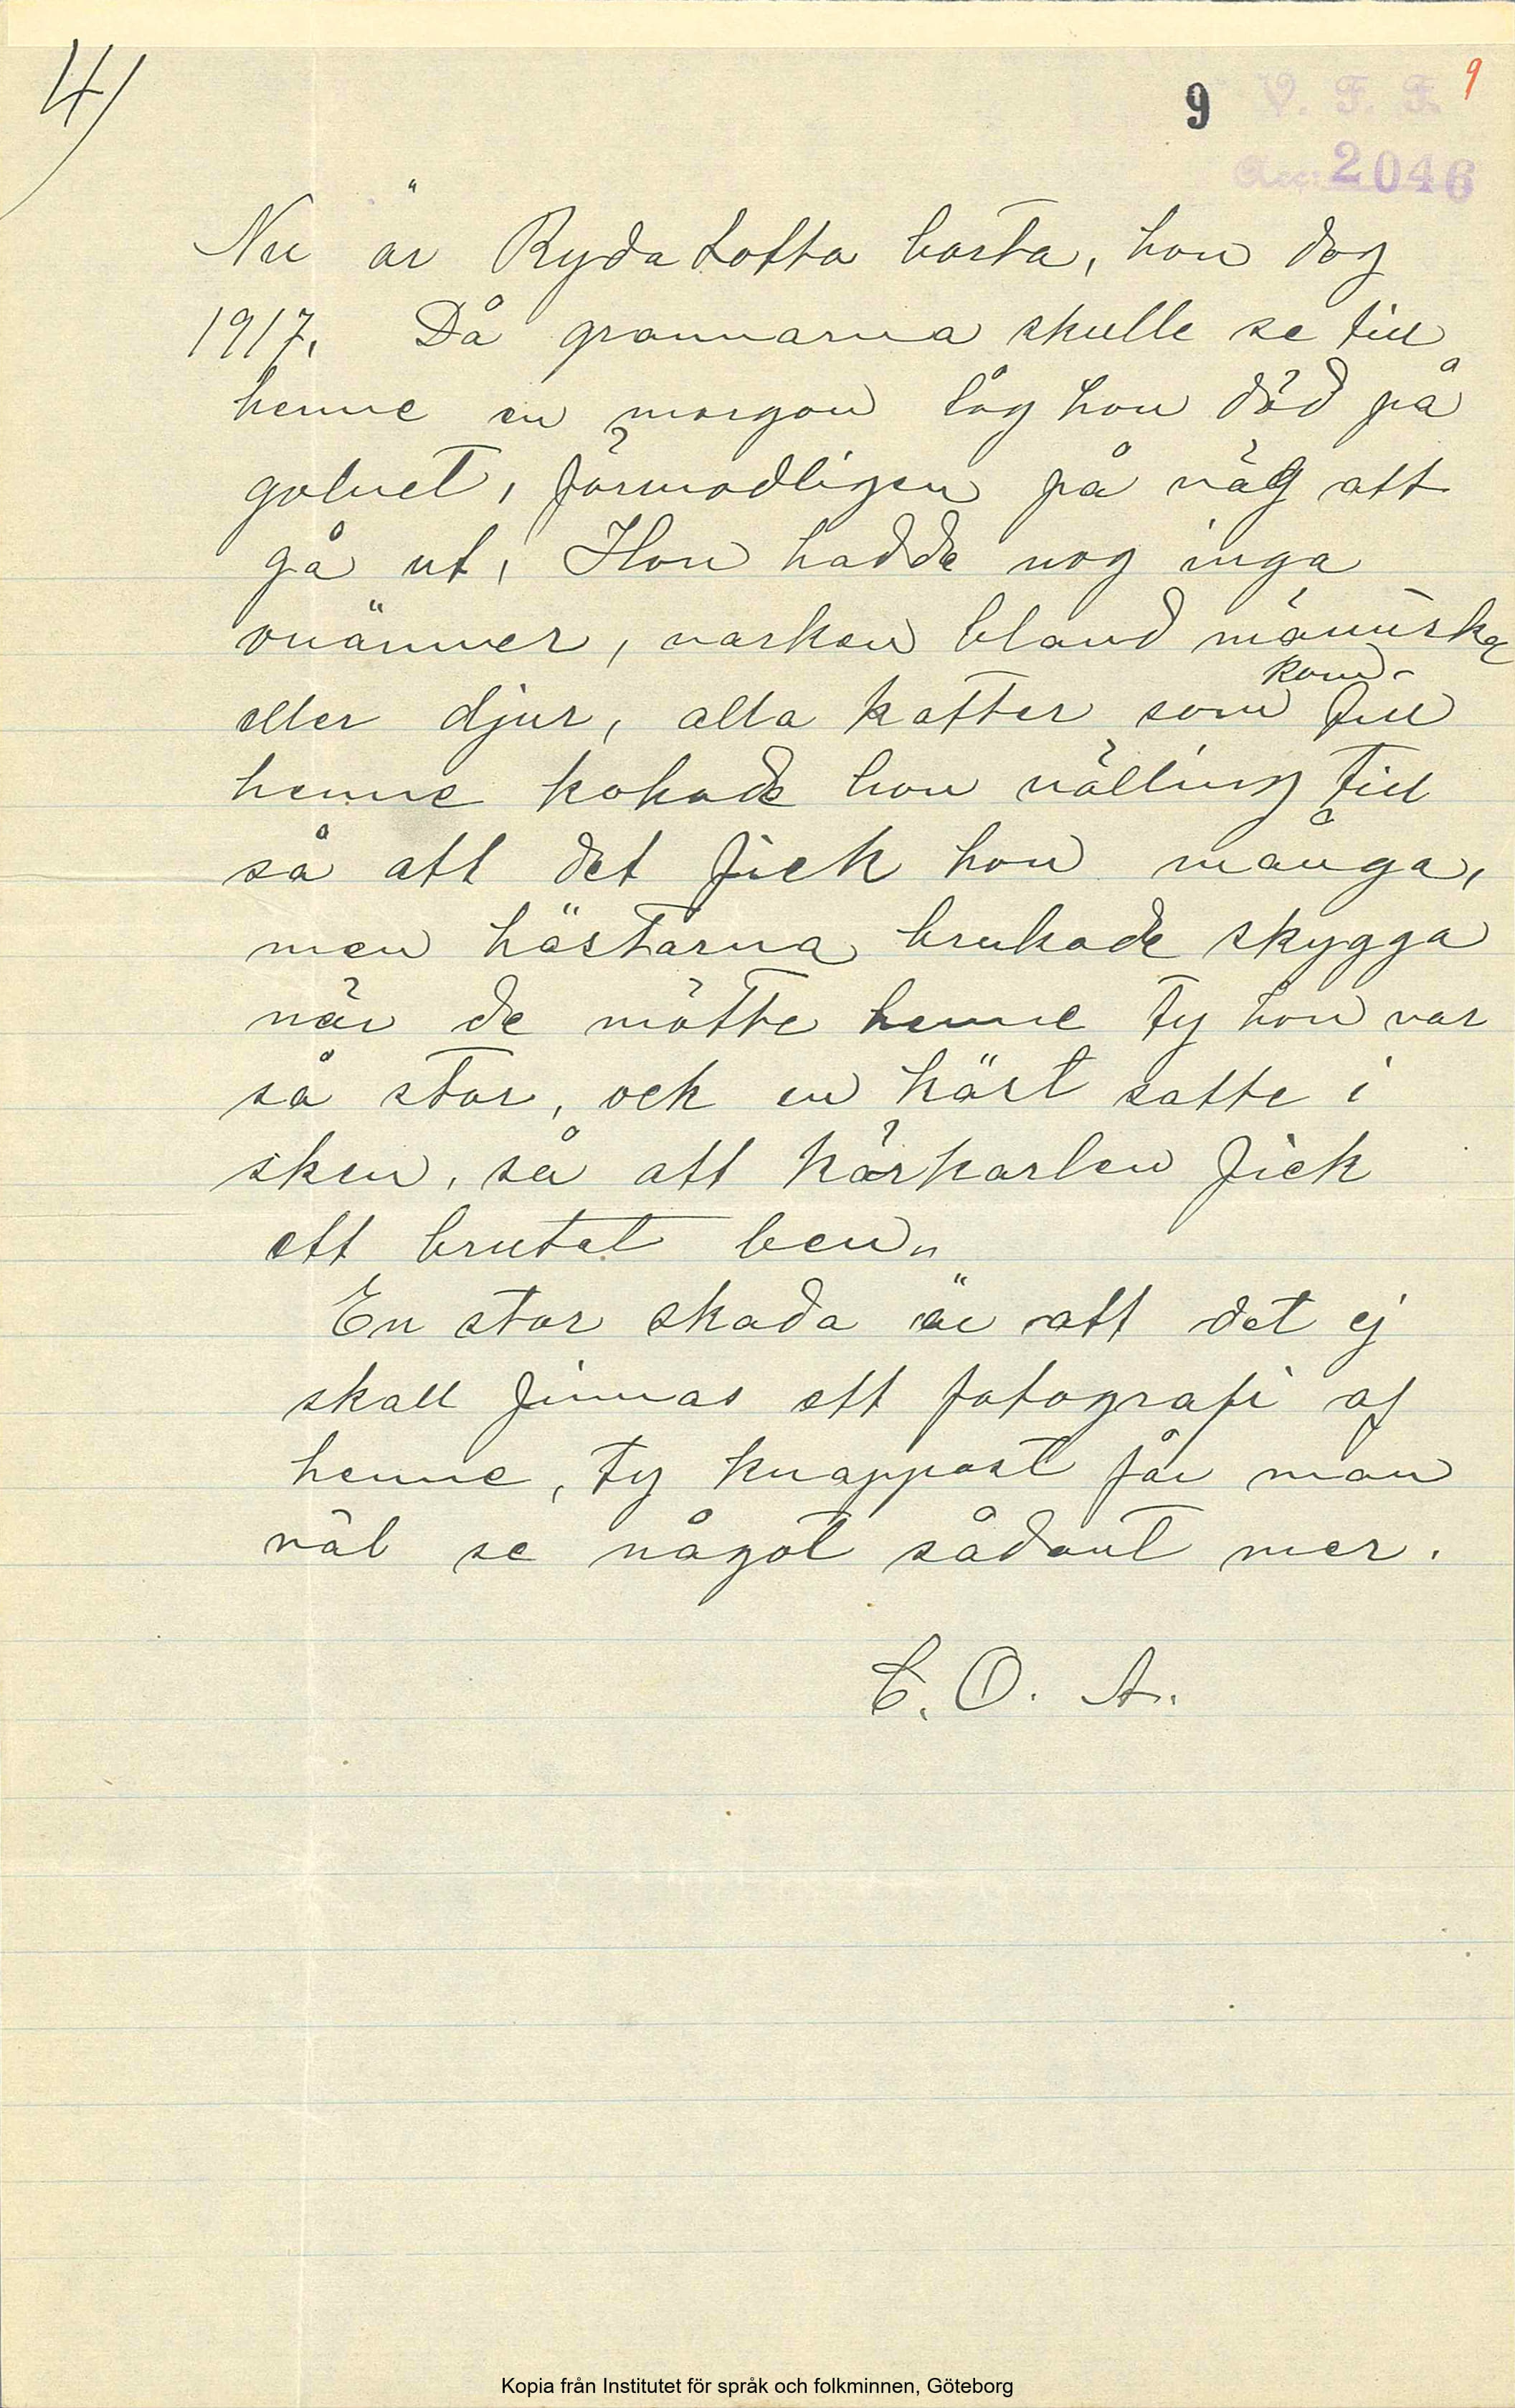 4)
9 V. F. F. 9
Acc: 2046
Nu är Ryda Lotta borta, hon dog
1917. Då grannarna skulle se till
henne en morgon låg hon död på
golvet, förmodligen på väg att
gå ut, Hon hadde nog inga
ovänner, varken bland människa
eller djur, alla katter som kom till
henne kokade hon välling till
så att det fick hon många,
men hästarna brukade skygga
när de mötte henne ty hon var
så stor, ock en häst satte i
sken, så att körkarlen fick
ett brutet ben.
En stor skada är att det ej
skall finnas ett fotografi af
henne, ty knappast får man
väl se något sådant mer.
C. O. A.
Kopia från Institutet för språk och folkminnen, Göteborg